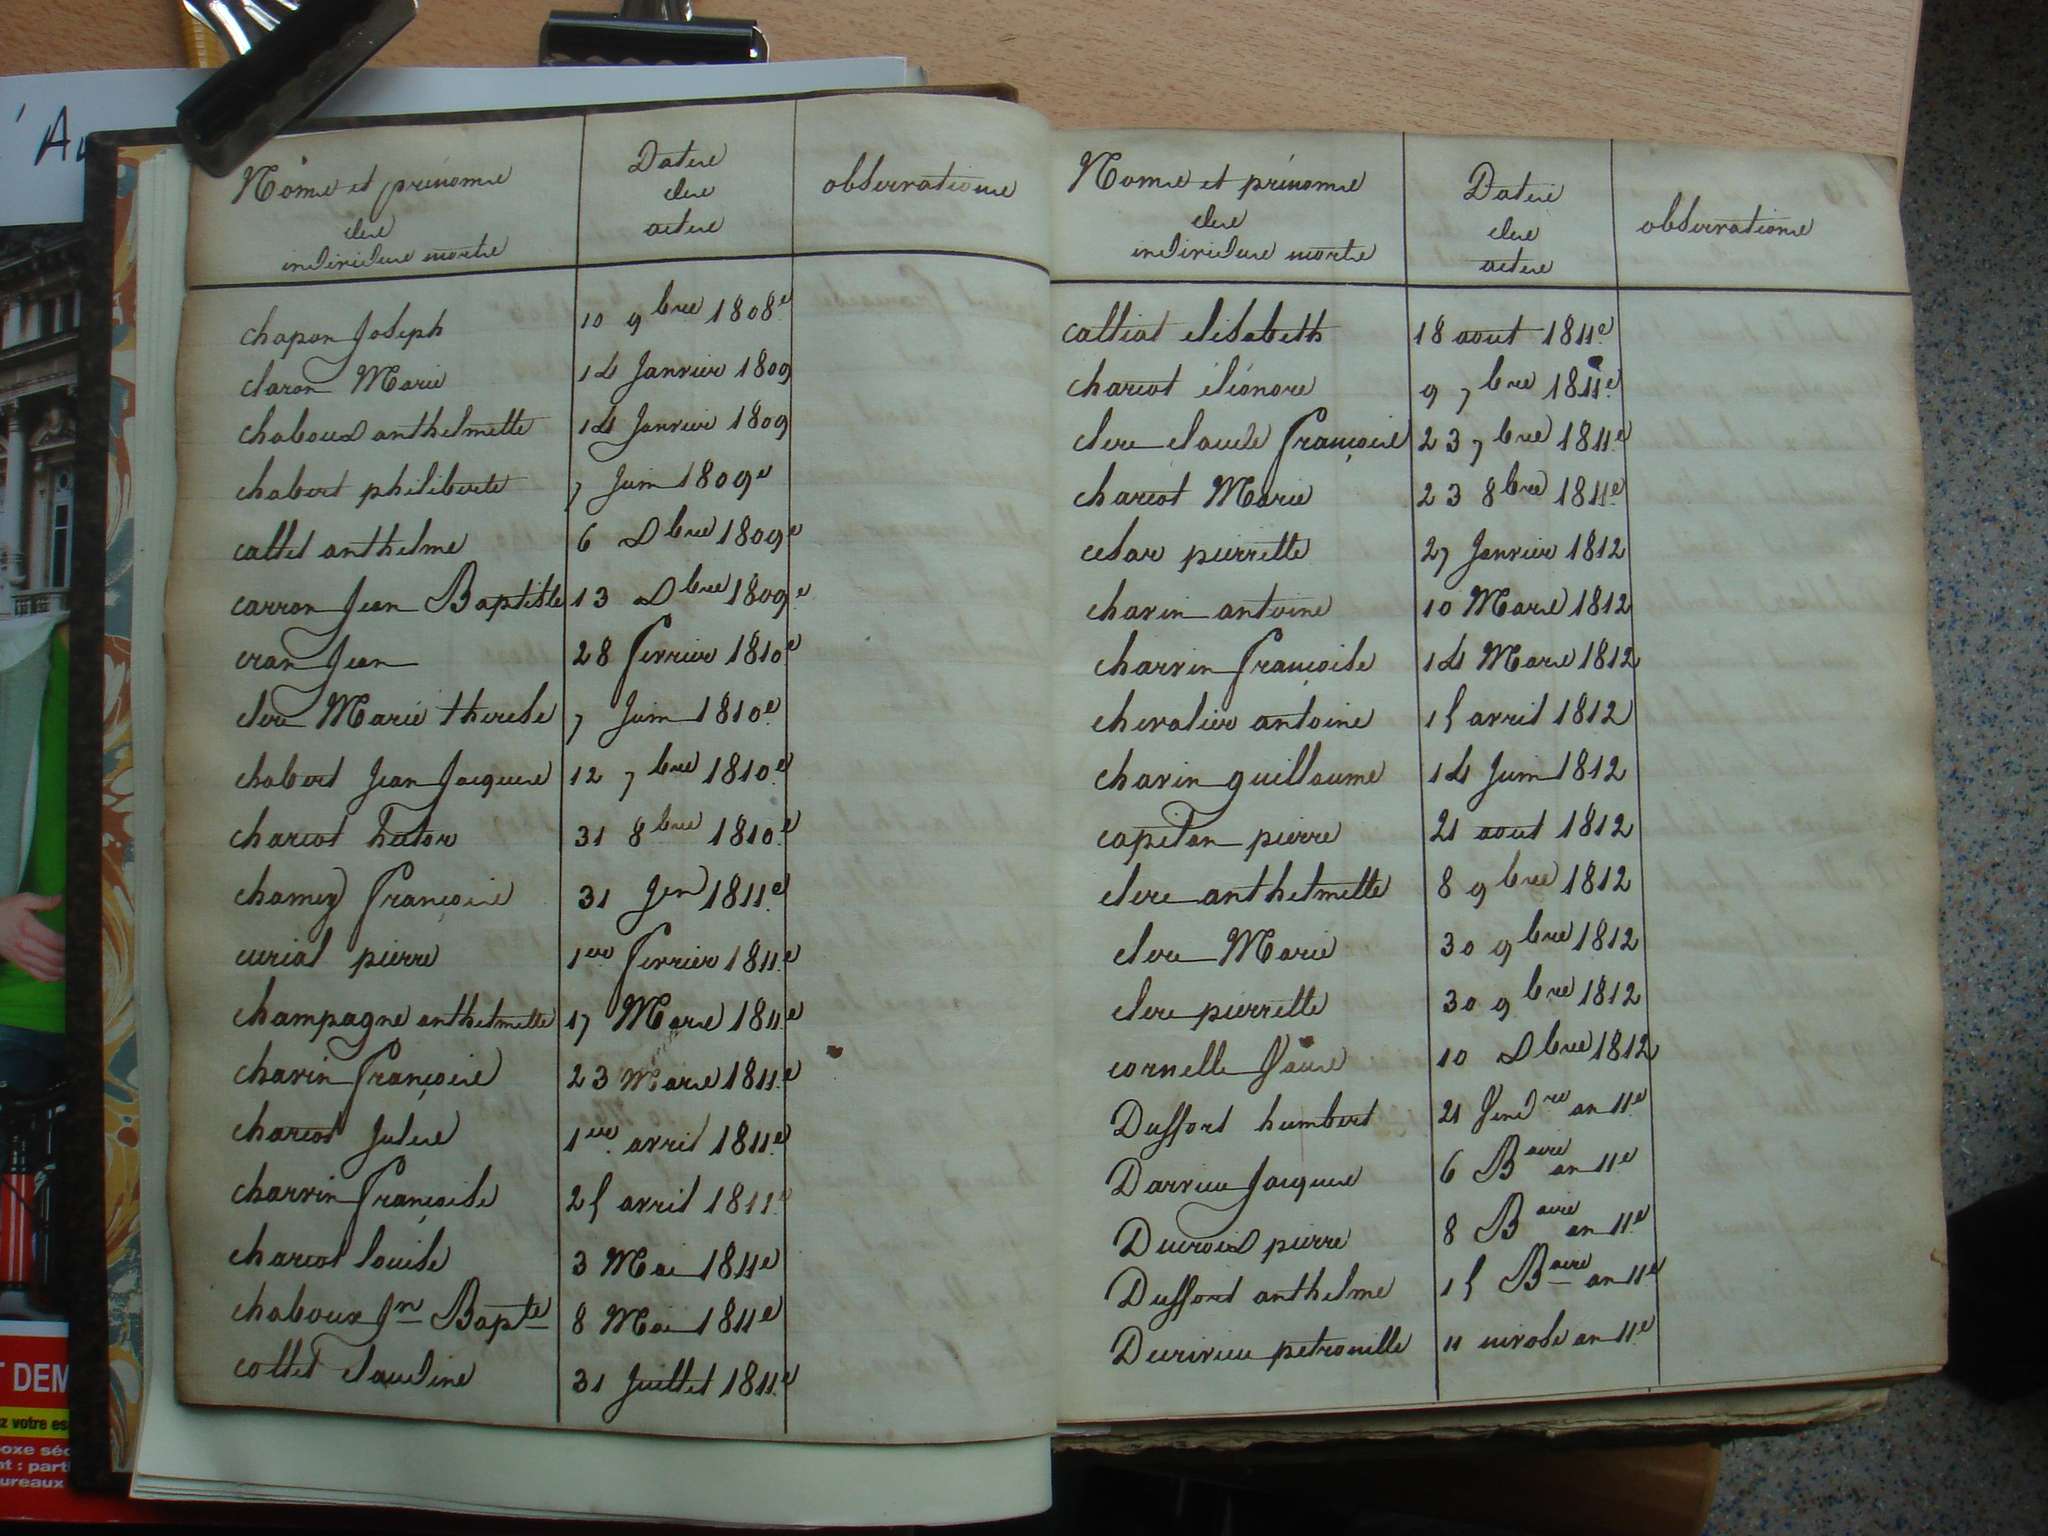 ' Au
Noms et prénoms
des
individus morts
Dates
des
actes
observations
chapon Joseph 10 9bre 1808
claron Marie 14 Janvier 1809
chaboud anthelmette 14 Janvier 1809
chabert philiberte 7 Juin 1809
callet anthelme 6 Dbre 1809
carron Jean Baptiste 13 Dbre 1809
cran Jean 28 fevrier 1810
clerc Marie therese 7 Juin 1810
chabert Jean Jacques 12 7bre 1810
charcot hector 31 8bre 1810
chamey françois 31 Jer 1811
curial pierre 1er fevrier 1811
champagne anthelmette 17 Mars 1811
chavin françois 23 Mars 1811
charcot Jules 1er avril 1811
charvin françoise 25 avril 1811
charcot louise 3 Mai 1811
choboux Jn Bapte 8 Mai 1811
collet claudine 31 Juillet 1811
Noms et prénoms
des
individus morts
Dates
des
actes
observations
calliat elisabeth 18 aout 1811
charcot éléonore 9 7bre 1811
clerc claude françois 23 7bre 1811
charcot Marie 23 8bre 1811
cesar pierrette 27 Janvier 1812
chavin antoine 10 Mars 1812
charvin françoise 14 Mars 1812
chevalier antoine 15 avril 1812
chavin guillaume 14 Juin 1812
capitan pierre 21 aout 1812
clerc anthelmette 8 9bre 1812
clerc Marie 30 9bre 1812
clerc pierrette 30 9bre 1812
cornelle 10 Dbre 1812
Duffort humbert 21 Vendre an 11
Darvieu Jacques 6 Baire an 11
Ducroid pierre 8 Baire an 11
Duffort anthelme 15 Baire an 11
Durivieu petronille 11 nivose an 11
T DEM
z votre es
oxe séc
nt : parti
ureaux